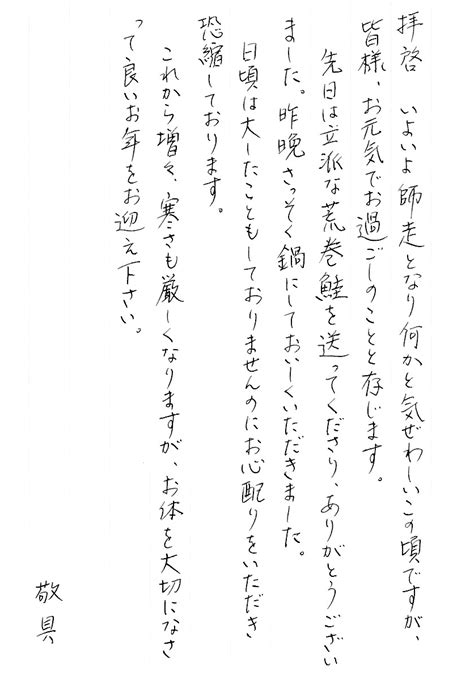 拝啓　いよいよ師走となり何かと気ぜわしいこの頃ですが、
皆様、お元気でお過ごしのことと存じます。
先日は立派な荒巻鮭を送ってくださり、ありがとうござい
ました。昨晩さっそく鍋にしておいしくいただきました。
日頃は大したこともしておりませんのにお心配りをいただき
恐縮しております。
これから増々、寒さも厳しくなりますが、お体を大切になさ
って良いお年をお迎え下さい。
敬具